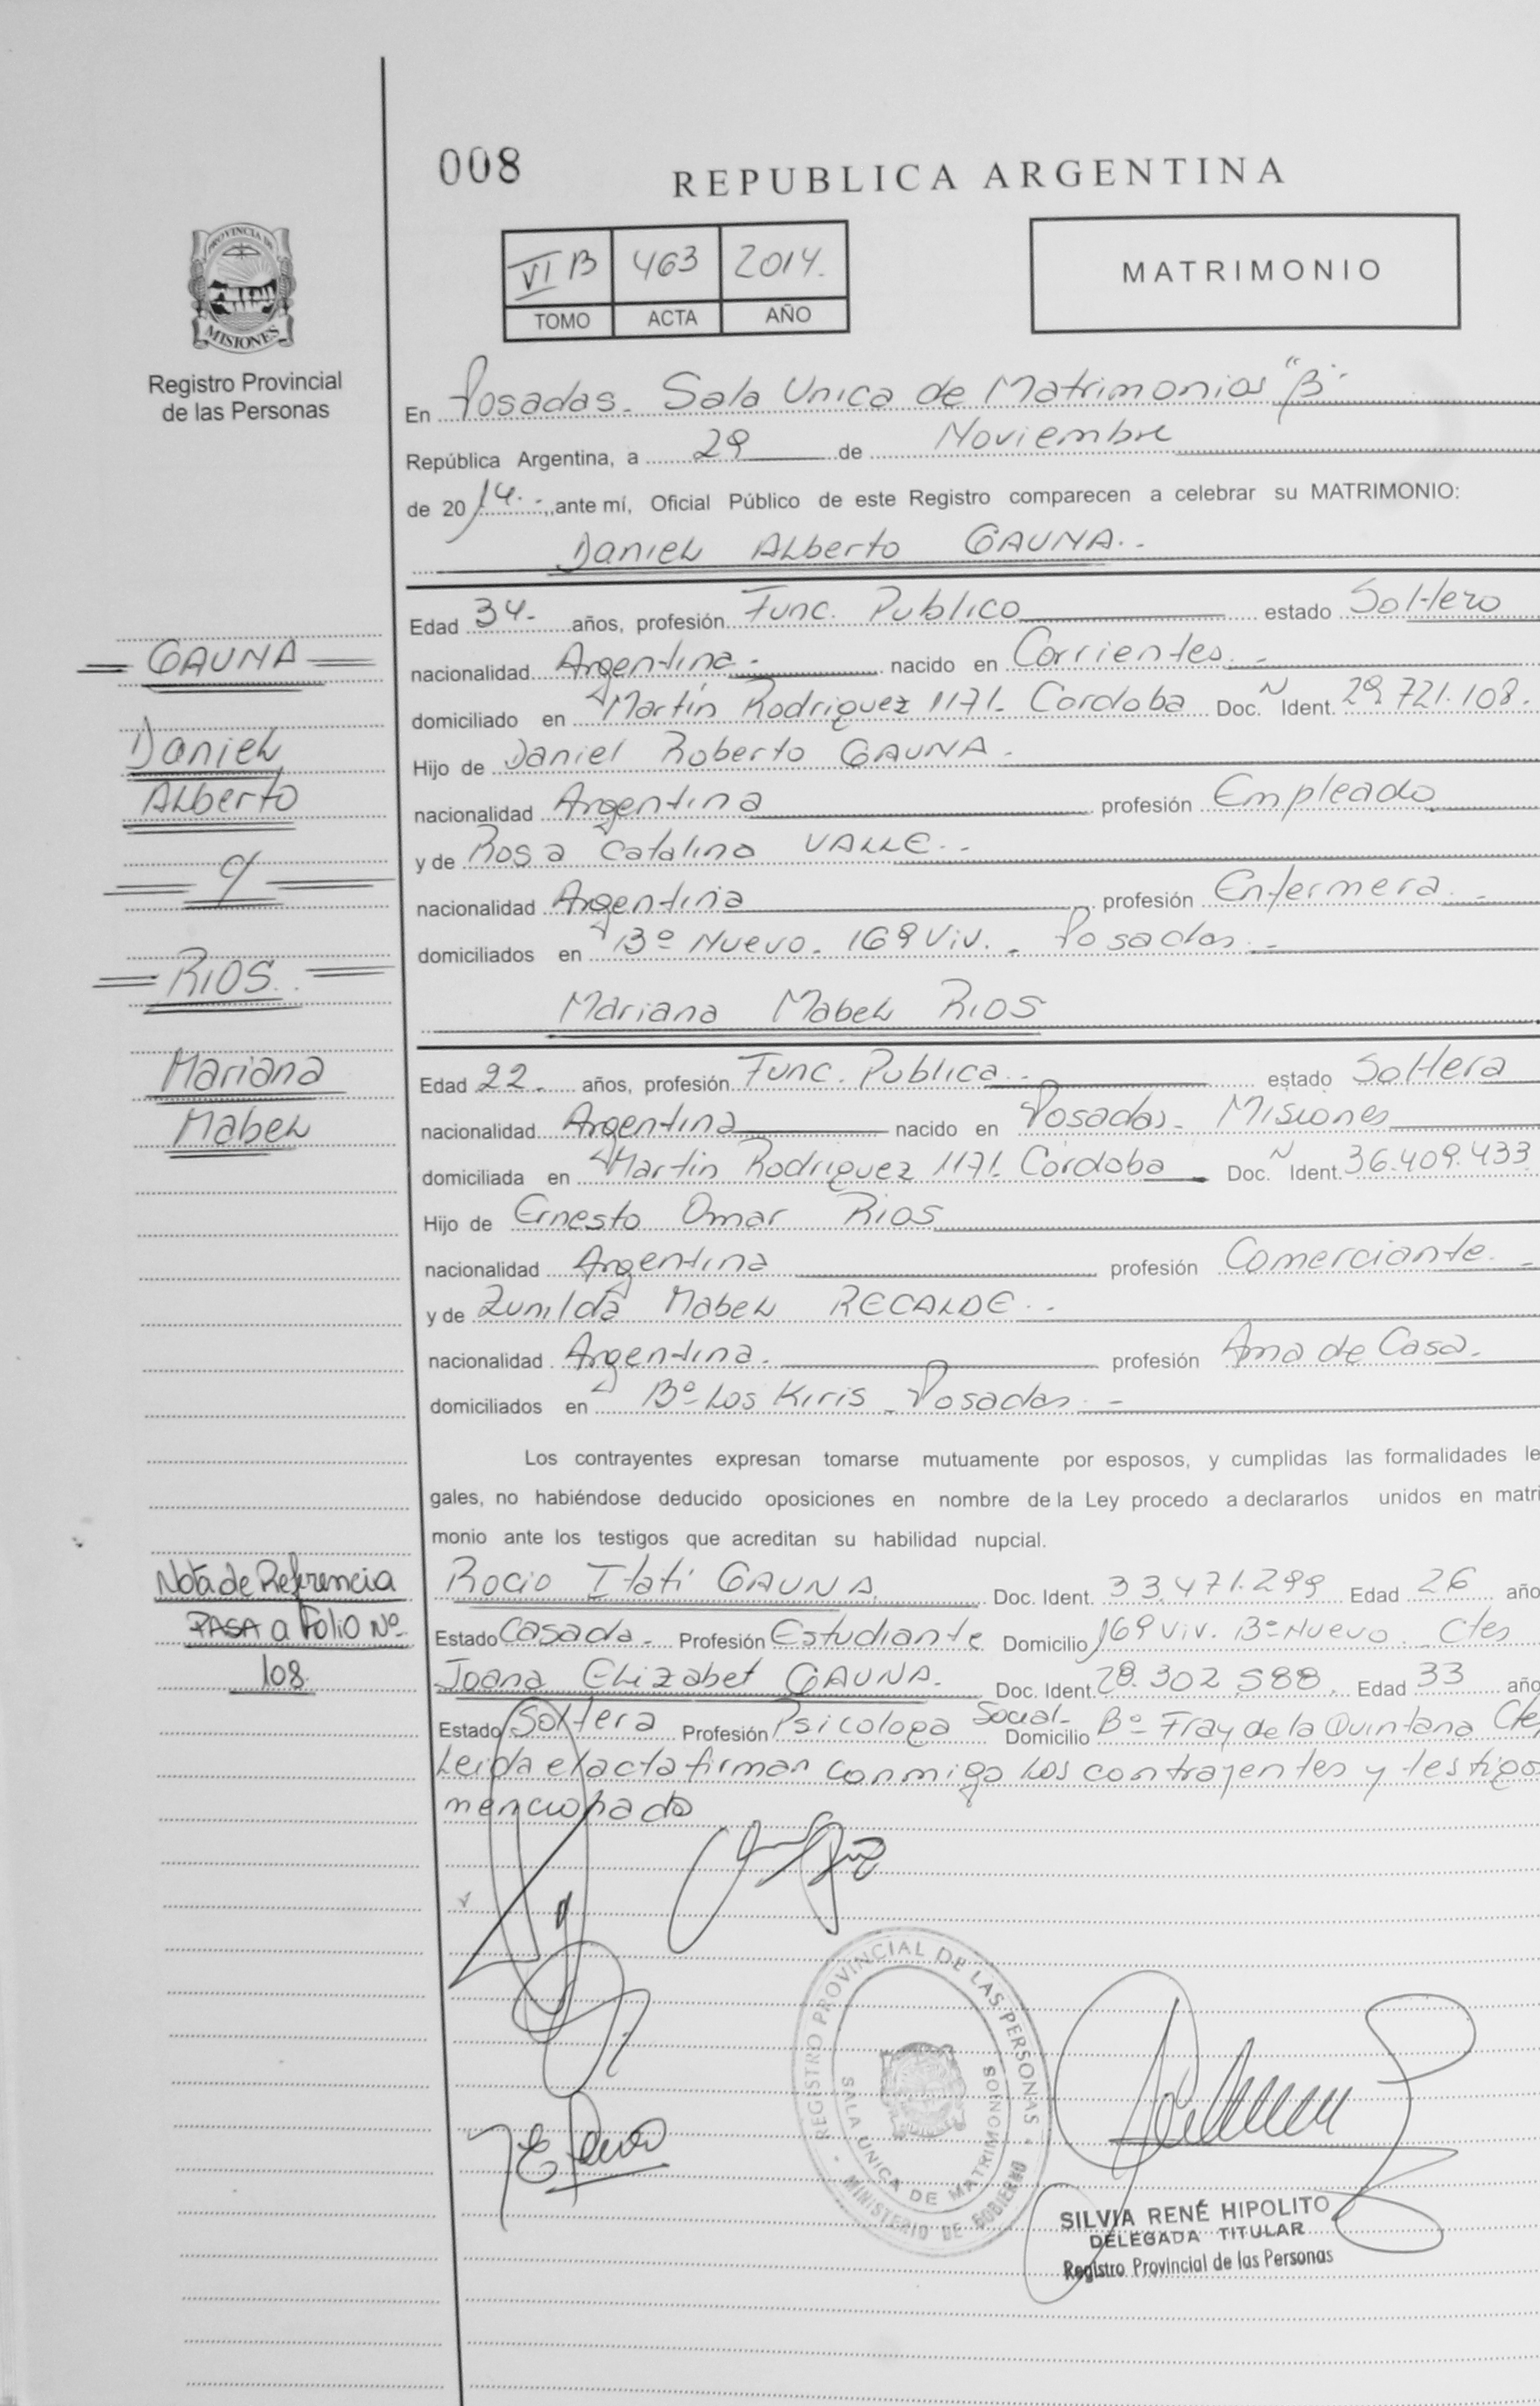 008
REPUBLICA ARGENTINA
PROVINCIA DE
MISIONES
Registro Provincial
de las Personas
VI B 463 2014.
TOMO ACTA AÑO
MATRIMONIO
En Posadas. Sala Unica de Matrimonios "B".
República Argentina, a 29 de Noviembre
de 2014.-, ante mí, Oficial Público de este Registro comparecen a celebrar su MATRIMONIO:
Daniel Alberto GAUNA.-
Edad 34- años, profesión Func. Publico estado Soltero
nacionalidad Argentina.- nacido en Corrientes.-
domiciliado en Martín Rodriguez 1171- Cordoba Doc. N Ident. 29.721.108.
Hijo de Daniel Roberto GAUNA.-
nacionalidad Argentina profesión Empleado
y de Rosa Catalina VALLE.-
nacionalidad Argentina profesión Enfermera.-
domiciliados en Bº Nuevo. 169 Viv. - Posadas.-
Mariana Mabel RIOS
Edad 22. años, profesión Func. Publica.- estado Soltera
nacionalidad Argentina nacido en Posadas- Misiones
domiciliada en Martin Rodriguez 1171- Córdoba Doc. N Ident. 36.409.433
Hijo de Ernesto Omar RIOS
nacionalidad Argentina profesión Comerciante.-
y de Zunilda Mabel RECALDE.-
nacionalidad Argentina. profesión Ama de Casa.
domiciliados en Bº Los Kiris - Posadas.-
Los contrayentes expresan tomarse mutuamente por esposos, y cumplidas las formalidades le
gales, no habiéndose deducido oposiciones en nombre de la Ley procedo a declararlos unidos en matri
monio ante los testigos que acreditan su habilidad nupcial.
Rocio Itati GAUNA. Doc. Ident. 33.471.299 Edad 26 año
Estado Casada- Profesión Estudiante Domicilio 169 Viv. Bº Nuevo. Ctes
Joana Elizabet GAUNA. Doc. Ident. 28.302.588. Edad 33 año
Estado Soltera Profesión Psicologa Social- Domicilio Bº Fray de la Quintana Cte
Leida el acta firman conmigo los contrayentes y testigos
mencionado
= GAUNA =
Daniel
Alberto
= c/ =
= RIOS. =
Mariana
Mabel
Nota de Referencia
PASA a Folio Nº
108.
REGISTRO PROVINCIAL DE LAS PERSONAS
SALA UNICA DE MATRIMONIOS
MINISTERIO DE GOBIERNO
SILVIA RENÉ HIPOLITO
DELEGADA TITULAR
Registro Provincial de las Personas